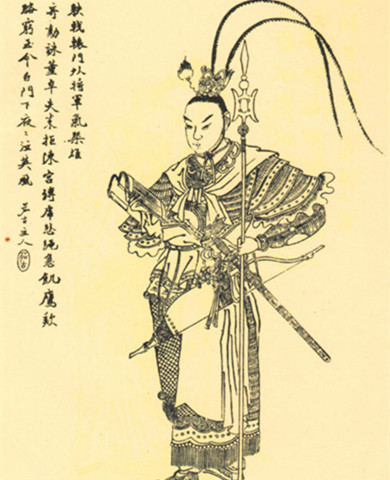 射戟轅門外將軍氣槩雄
奇勛誅董卓失策拒陳宮縛虎悲繩急飢鷹歎
路窮至今白門下夜〻泣英風 主人